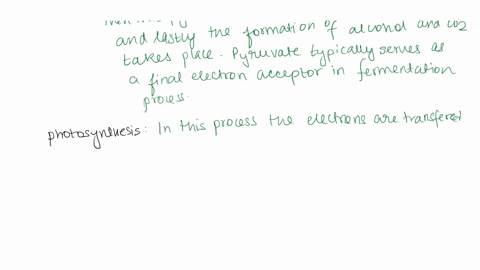 and lastly the formation of alcohol and co2
takes place. Pyruvate typically serves as
a final electron acceptor in fermentation
process.
photosynthesis: In this process the electrons are transfered